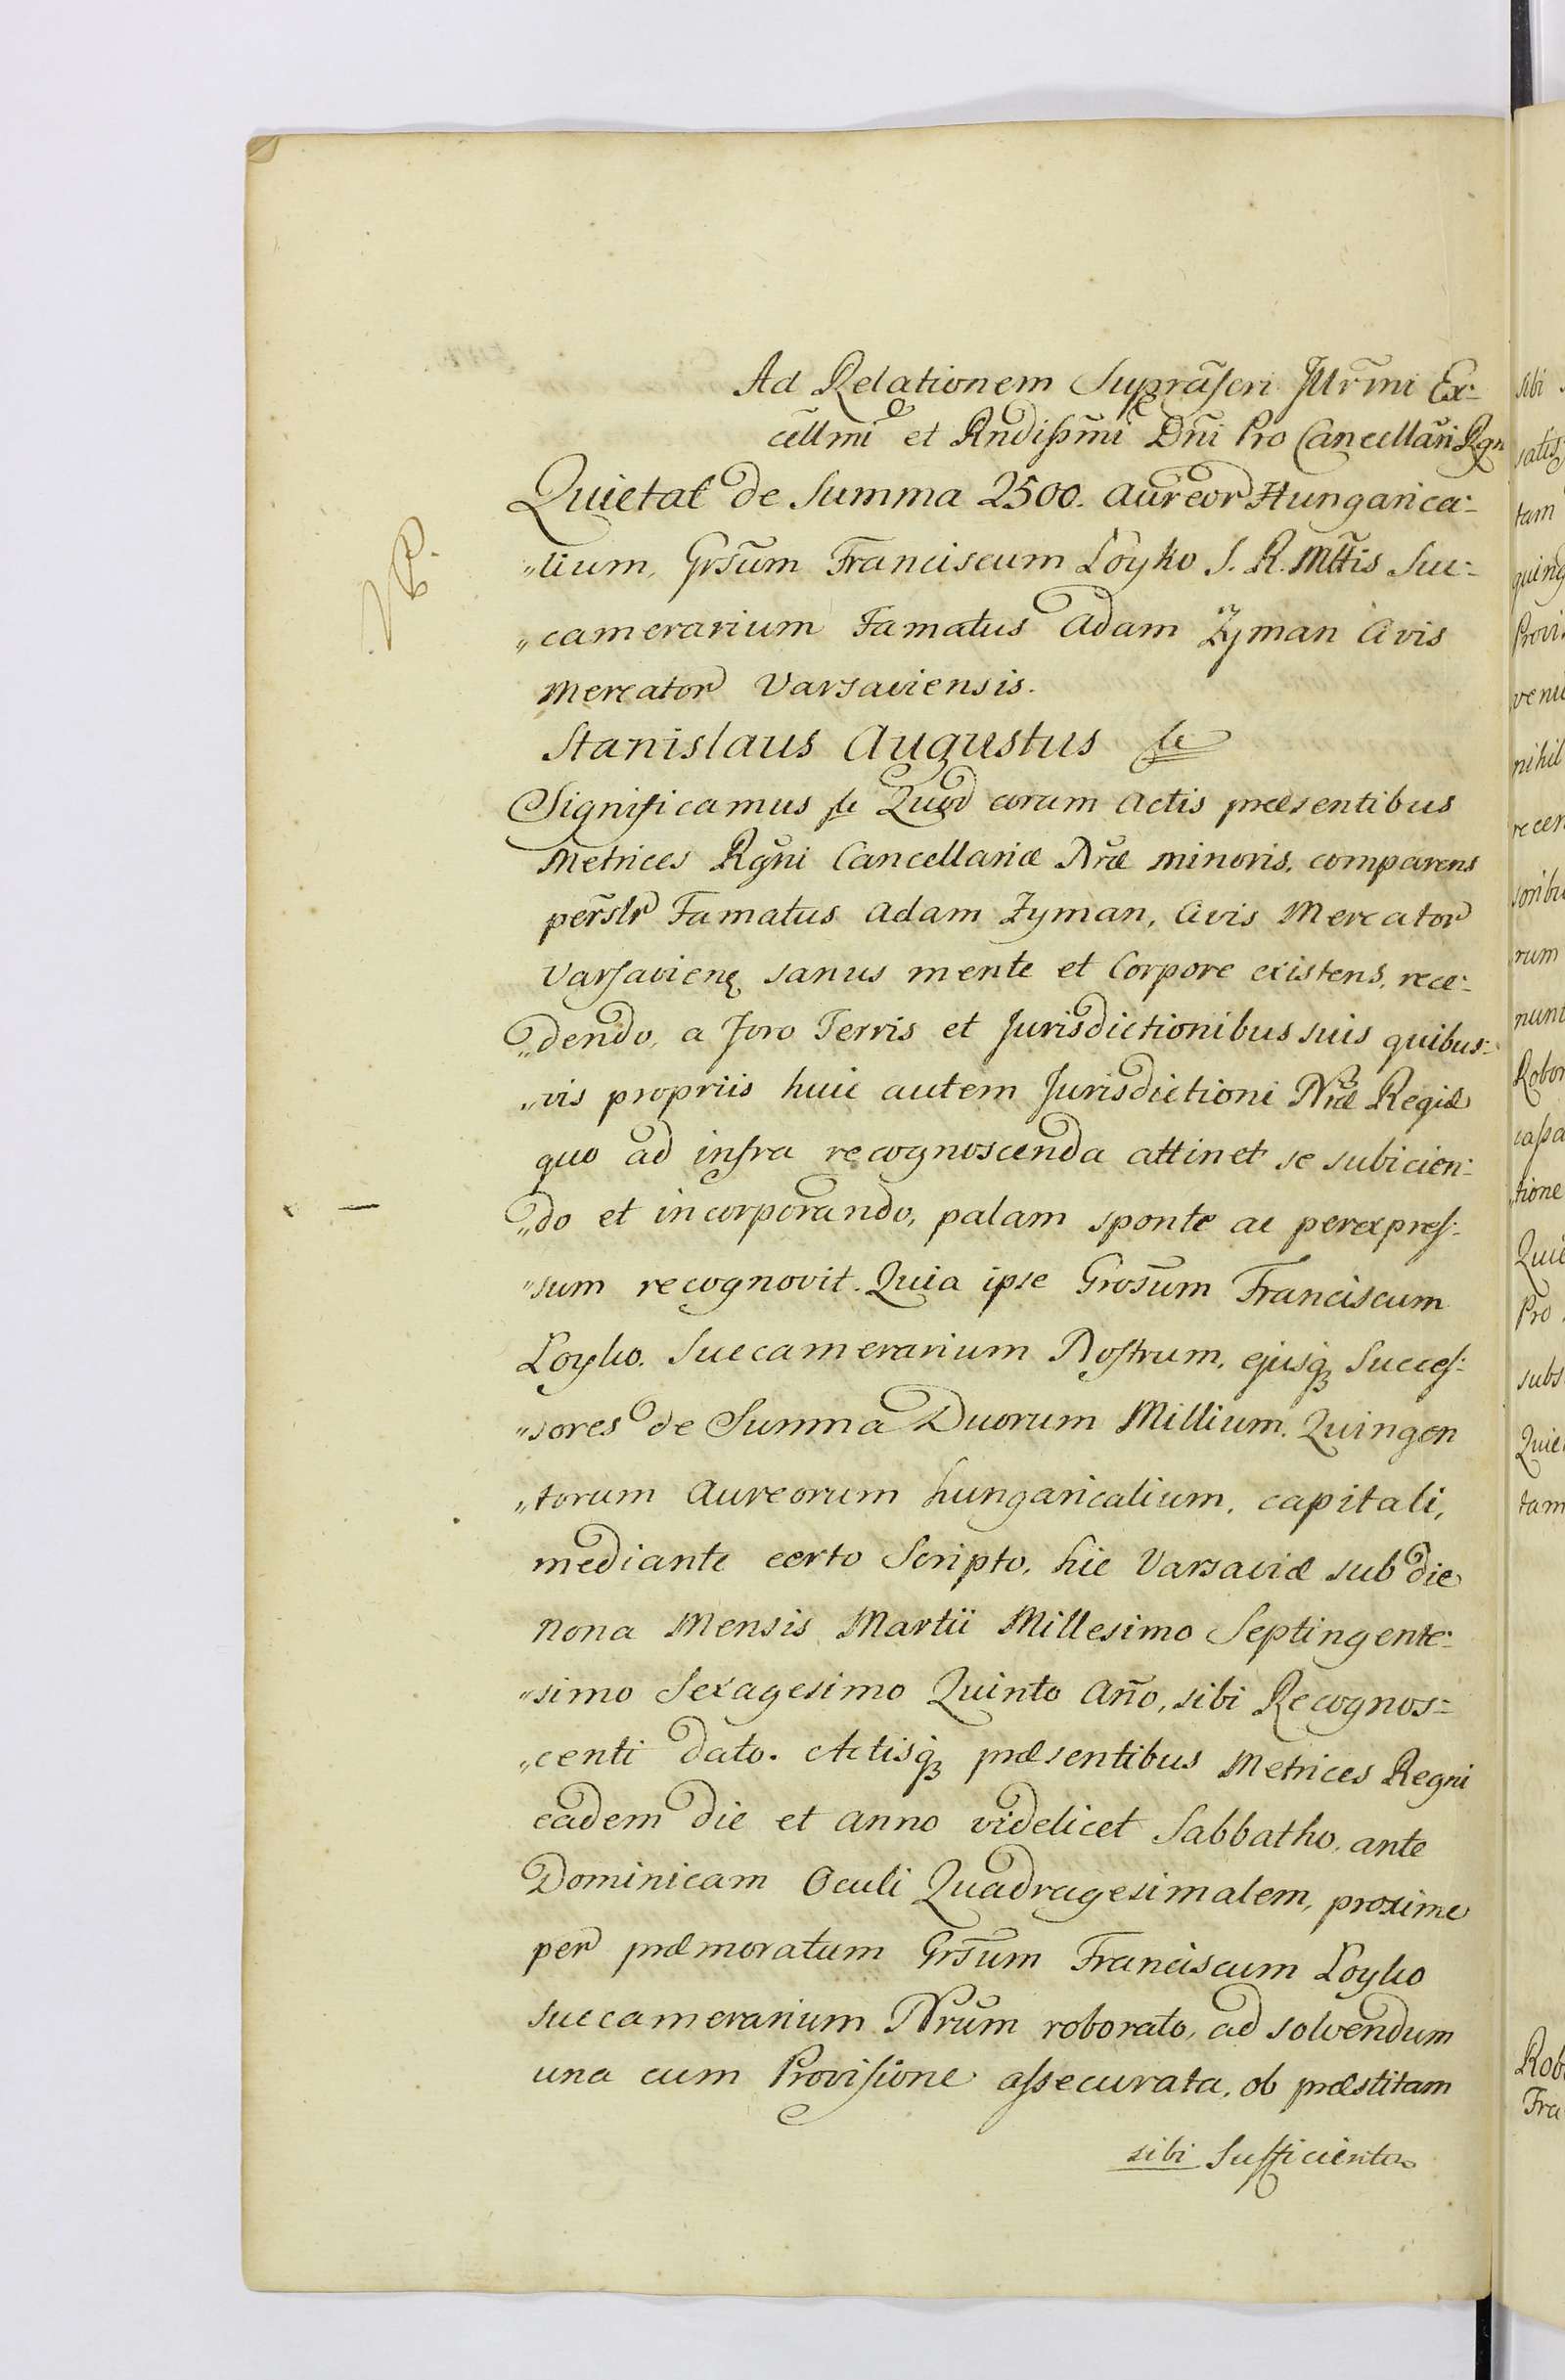 Ad Relationem Suprascri Illrmi Ex:
cellmi et Rndissmi Dni Pro Cancellari Rgn
Quietat de Summa 2500. aureor Hungarica:
"lium, Grsum Franciscum Łoyko S. R. Mttis Suc:
"camerarium Famatus Adam Zyman Civis
Mercator Varsaviensis.
Stanislaus Augustus &c
Significamus &c Quod coram Actis præsentibus
Metrices Rgni Cancellariæ Nræ minoris, comparens
perslr Famatus Adam Zyman, Civis Mercator
Varsavien sanus mente et Corpore existens, rece:
"dendo, a Foro Terris et Jurisdictionibus suis quibus:
"vis propriis huic autem Jurisdictioni Nræ Regiæ
quo ad infra recognoscenda attinet se subicien:
"do et incorporando, palam sponte ac perexpres:
"sum recognovit. Quia ipse Grosum Franciscum
Łoyko. Succamerarium Nostrum, ejusq Succes:
"sores de Summa Duorum Millium. Quingen
"torum Aureorum hungaricalium, capitali,
mediante certo Scripto, hic Varsaviæ sub die
nona Mensis Martii Millesimo Septingente:
"simo Sexagesimo Quinto Año, sibi Recognos:
"centi dato. Actisq præsentibus Metrices Regni
eadem die et anno videlicet Sabbatho, ante
Dominicam Oculi Quadragesimalem, proxime
per præmoratum Grsum Franciscum Łoyko
succamerarium Nrum roborato, ad solvendum
una cum Provisione assecurata, ob præstitam
sibi Sufficientem
sibi
satis
tam
quing
Provi
venu
nihil
recen
soribu
rum
num
Robor
cassa
"tione
Quie
Pro
subs
Quie
tam
Rob
Fra